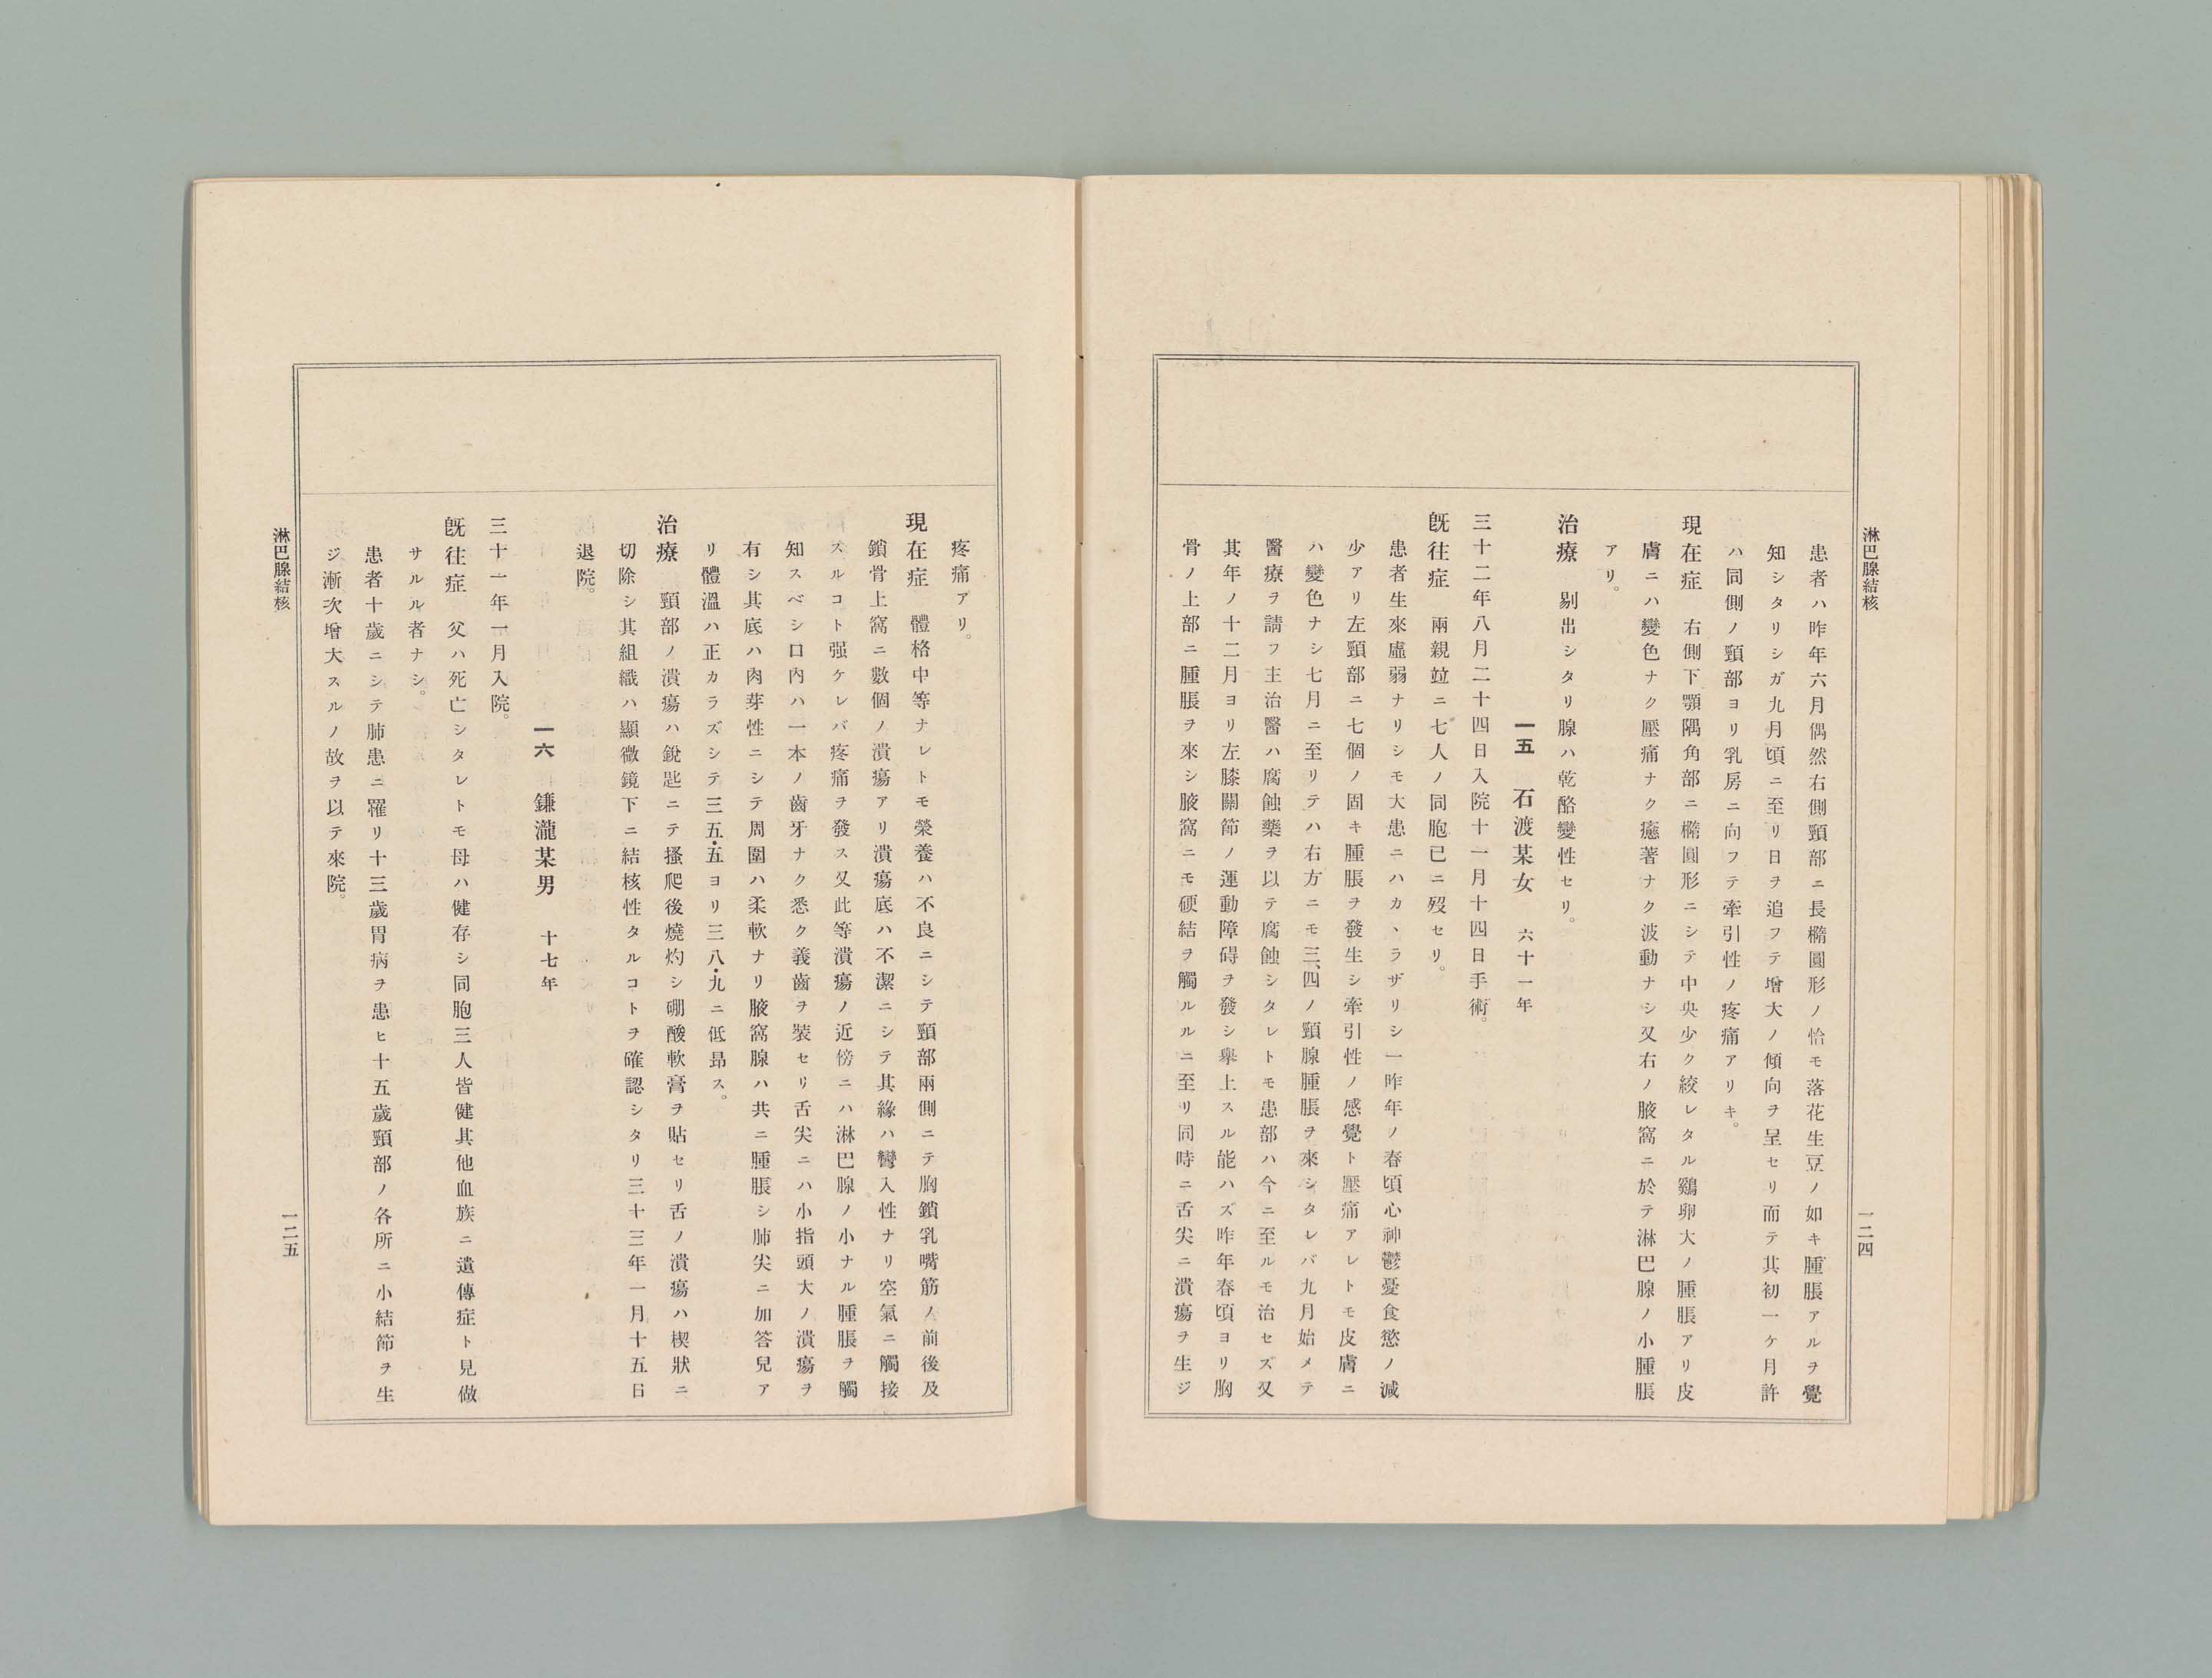 淋巴腺結核
一二四
患者ハ昨年六月偶然右側頸部ニ長橢圓形ノ恰モ落花生豆ノ如キ腫脹アルヲ覺
知シタリシガ九月頃ニ至リ日ヲ追フテ增大ノ傾向ヲ呈セリ而テ其初一ケ月許
ハ同側ノ頸部ヨリ乳房ニ向フテ牽引性ノ疼痛アリキ。
現在症　右側下顎隅角部ニ橢圓形ニシテ中央少ク絞レタル鷄卵大ノ腫脹アリ皮
膚ニハ變色ナク壓痛ナク癒著ナク波動ナシ又右ノ腋窩ニ於テ淋巴腺ノ小腫脹
アリ。
治療　剔出シタリ腺ハ乾酪變性セリ。
一五　石渡某女　六十一年
三十二年八月二十四日入院十一月十四日手術。
旣往症　兩親竝ニ七人ノ同胞已ニ歿セリ。
患者生來虛弱ナリシモ大患ニハカヽラザリシ一昨年ノ春頃心神鬱憂食慾ノ減
少アリ左頸部ニ七個ノ固キ腫脹ヲ發生シ牽引性ノ感覺ト壓痛アレトモ皮膚ニ
ハ變色ナシ七月ニ至リテハ右方ニモ三、四ノ頸腺腫脹ヲ來シタレバ九月始メテ
醫療ヲ請フ主治醫ハ腐蝕藥ヲ以テ腐蝕シタレトモ患部ハ今ニ至ルモ治セズ又
其年ノ十二月ヨリ左膝關節ノ運動障碍ヲ發シ擧上スル能ハズ昨年春頃ヨリ胸
骨ノ上部ニ腫脹ヲ來シ腋窩ニモ硬結ヲ觸ルルニ至リ同時ニ舌尖ニ潰瘍ヲ生ジ
疼痛アリ。
現在症　體格中等ナレトモ榮養ハ不良ニシテ頸部兩側ニテ胸鎖乳嘴筋ノ前後及
鎖骨上窩ニ數個ノ潰瘍アリ潰瘍底ハ不潔ニシテ其緣ハ彎入性ナリ空氣ニ觸接
スルコト强ケレバ疼痛ヲ發ス又此等潰瘍ノ近傍ニハ淋巴腺ノ小ナル腫脹ヲ觸
知スベシ口內ハ一本ノ齒牙ナク悉ク義齒ヲ裝セリ舌尖ニハ小指頭大ノ潰瘍ヲ
有シ其底ハ肉芽性ニシテ周圍ハ柔軟ナリ腋窩腺ハ共ニ腫脹シ肺尖ニ加答兒ア
リ體溫ハ正カラズシテ三五・五ヨリ三八・九ニ低昻ス。
治療　頸部ノ潰瘍ハ銳匙ニテ搔爬後燒灼シ硼酸軟膏ヲ貼セリ舌ノ潰瘍ハ楔狀ニ
切除シ其組織ハ顯微鏡下ニ結核性タルコトヲ確認シタリ三十三年一月十五日
退院。
一六　鎌瀧某男　十七年
三十一年一月入院。
旣往症　父ハ死亡シタレトモ母ハ健存シ同胞三人皆健其他血族ニ遺傳症ト見做
サルル者ナシ。
患者十歲ニシテ肺患ニ罹リ十三歲胃病ヲ患ヒ十五歲頸部ノ各所ニ小結節ヲ生
ジ漸次增大スルノ故ヲ以テ來院。
淋巴腺結核
一二五